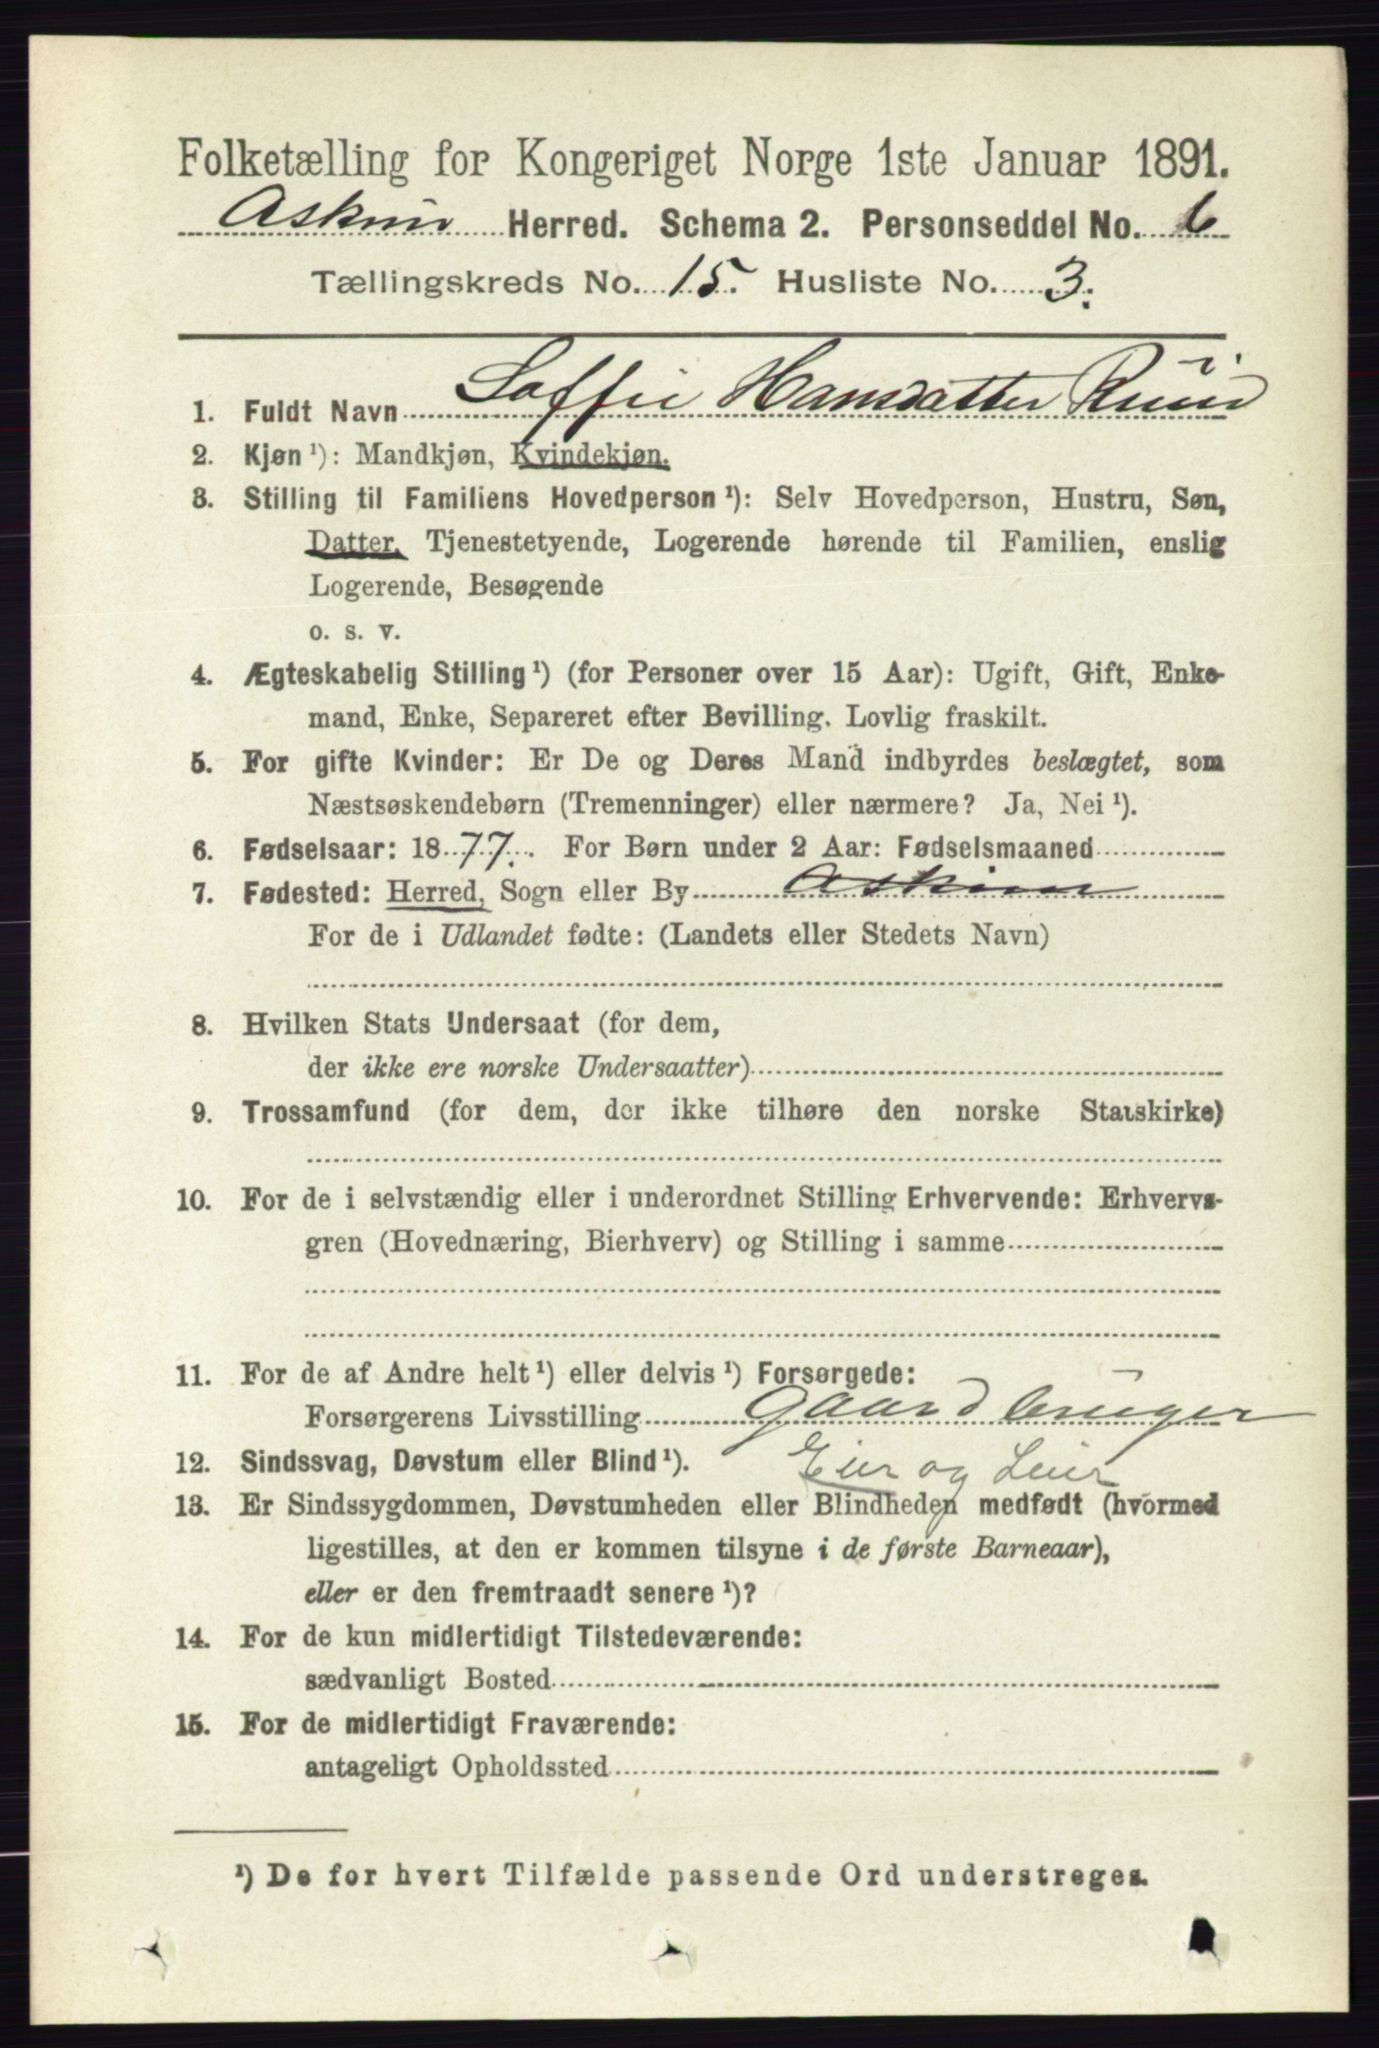 Folketælling for Kongeriget Norge 1ste Januar 1891.
Askim Herred. Schema 2. Personseddel No. 6
Tællingskreds No. 15. Husliste No. 3.
1. Fuldt Navn Soffie Hansdatter Ruud
2. Kjøn ¹): Mandkjøn, Kvindekjøn.
3. Stilling til Familiens Hovedperson ¹): Selv Hovedperson, Hustru, Søn,
Datter, Tjenestetyende, Logerende hørende til Familien, enslig
Logerende, Besøgende
o. s. v.
4. Ægteskabelig Stilling ¹) (for Personer over 15 Aar): Ugift, Gift, Enke-
mand, Enke, Separeret efter Bevilling. Lovlig fraskilt.
5. For gifte Kvinder: Er De og Deres Mand indbyrdes beslægtet, som
Næstsøskendebørn (Tremenninger) eller nærmere? Ja, Nei ¹).
6. Fødselsaar: 1877. For Børn under 2 Aar: Fødselsmaaned
7. Fødested: Herred, Sogn eller By Askim
For de i Udlandet fødte: (Landets eller Stedets Navn)
8. Hvilken Stats Undersaat (for dem,
der ikke ere norske Undersaatter)
9. Trossamfund (for dem, der ikke tilhøre den norske Statskirke)
10. For de i selvstændig eller i underordnet Stilling Erhvervende: Erhvervs-
gren (Hovednæring, Bierhverv) og Stilling i samme
11. For de af Andre helt ¹) eller delvis ¹) Forsørgede:
Forsørgerens Livsstilling Gaardbruger
12. Sindssvag, Døvstum eller Blind ¹). Eier og
13. Er Sindssygdommen, Døvstumheden eller Blindheden medfødt (hvormed
ligestilles, at den er kommen tilsyne i de første Barneaar),
eller er den fremtraadt senere ¹)?
14. For de kun midlertidigt Tilstedeværende:
sædvanligt Bosted
15. For de midlertidigt Fraværende:
antageligt Opholdssted
¹) De for hvert Tilfælde passende Ord understreges.